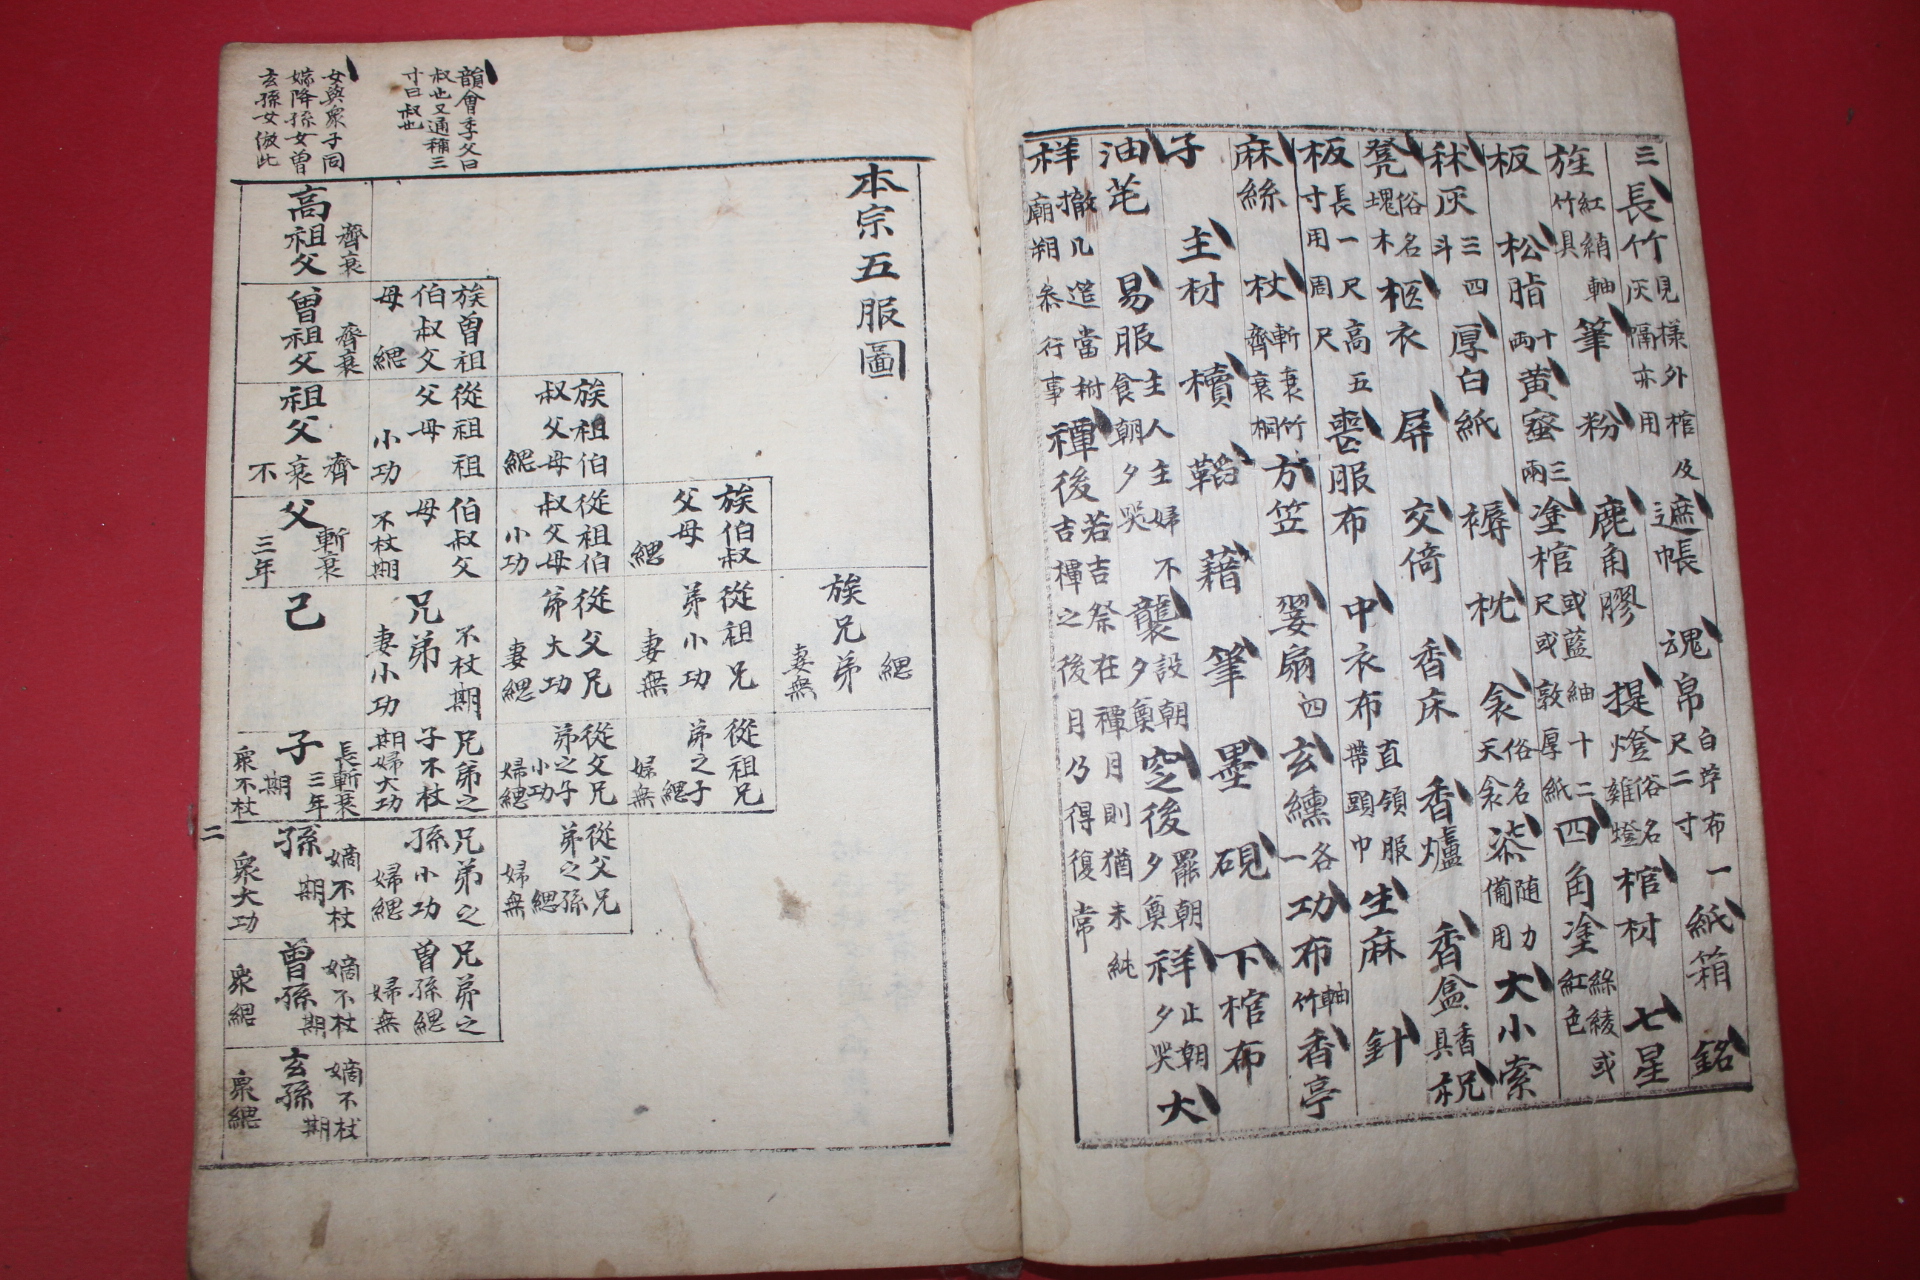 三長竹見樣外棺及灰隔亦用遮帳魂帛白苧布一尺二寸紙箱銘
旌紅綃軸竹具筆粉鹿角膠提燈俗名雜燈棺材七星
板松脂十兩黃蜜三兩塗棺或藍紬十二尺或敦厚紙四角塗綵綾或紅色
秫灰三四斗厚白紙褥枕衾俗名天衾柒隨力備用大小索
凳俗名塊木柩衣屏交倚香床香爐香盒香具祝
板長一尺高五寸用周尺喪服布中衣布直領服帶頭巾生麻針
麻絲杖斬衰竹齊衰桐方笠翣扇四玄纁各一功布軸竹香亭
子主材櫝韜藉筆墨硯下棺布
油芼易服主人主婦不食朝夕哭襲設朝夕奠窆後罷朝夕奠祥止朝夕哭大
祥撤几筵當祔廟朔叅行事禫後若吉祭在禫月則猶未純吉禫之後月乃得復常
韻會季父曰
叔也又通稱三
寸曰叔也
女與衆子同
嫁降孫女曾
玄孫女倣此
本宗五服圖
高祖父 齊衰
族曾祖伯叔父母 緦
曾祖父 齊衰
族祖伯叔父母 緦
從祖祖父母 小功
祖父 齊衰不
族伯叔父母 緦
從祖伯叔父母 小功
伯叔父母 不杖期
父 斬衰三年
族兄弟 緦 妻無
從祖兄弟 小功 妻無
從父兄弟 大功 妻緦
兄弟 不杖期 妻小功
己
從祖兄弟之子 緦 婦無
從父兄弟之子 小功 婦緦
兄弟之子 不杖期 婦大功
子 長斬衰三年 期 衆不杖
從父兄弟之孫 緦 婦無
兄弟之孫 小功 婦緦
孫 嫡不杖期 衆大功
兄弟之曾孫 緦 婦無
曾孫 嫡不杖期 衆緦
玄孫 嫡不杖期 衆緦
二